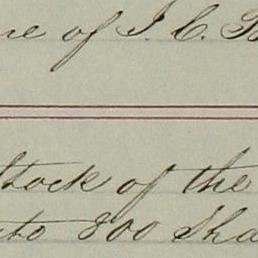 of J. C.
Stock of the
800 Sha